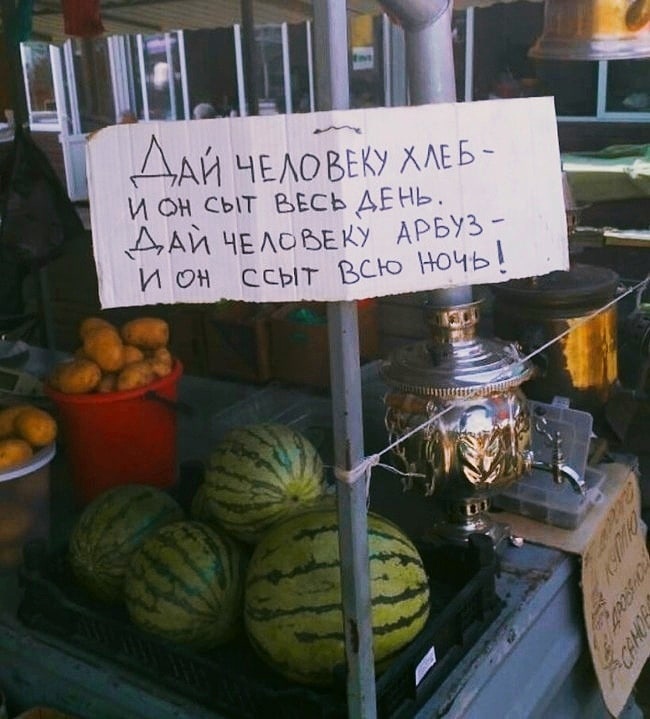 ДАЙ ЧЕЛОВЕКУ ХЛЕБ -
И ОН СЫТ ВЕСЬ ДЕНЬ.
ДАЙ ЧЕЛОВЕКУ АРБУЗ -
И ОН ССЫТ ВСЮ НОЧЬ!
КУПЛЮ
САМОВ